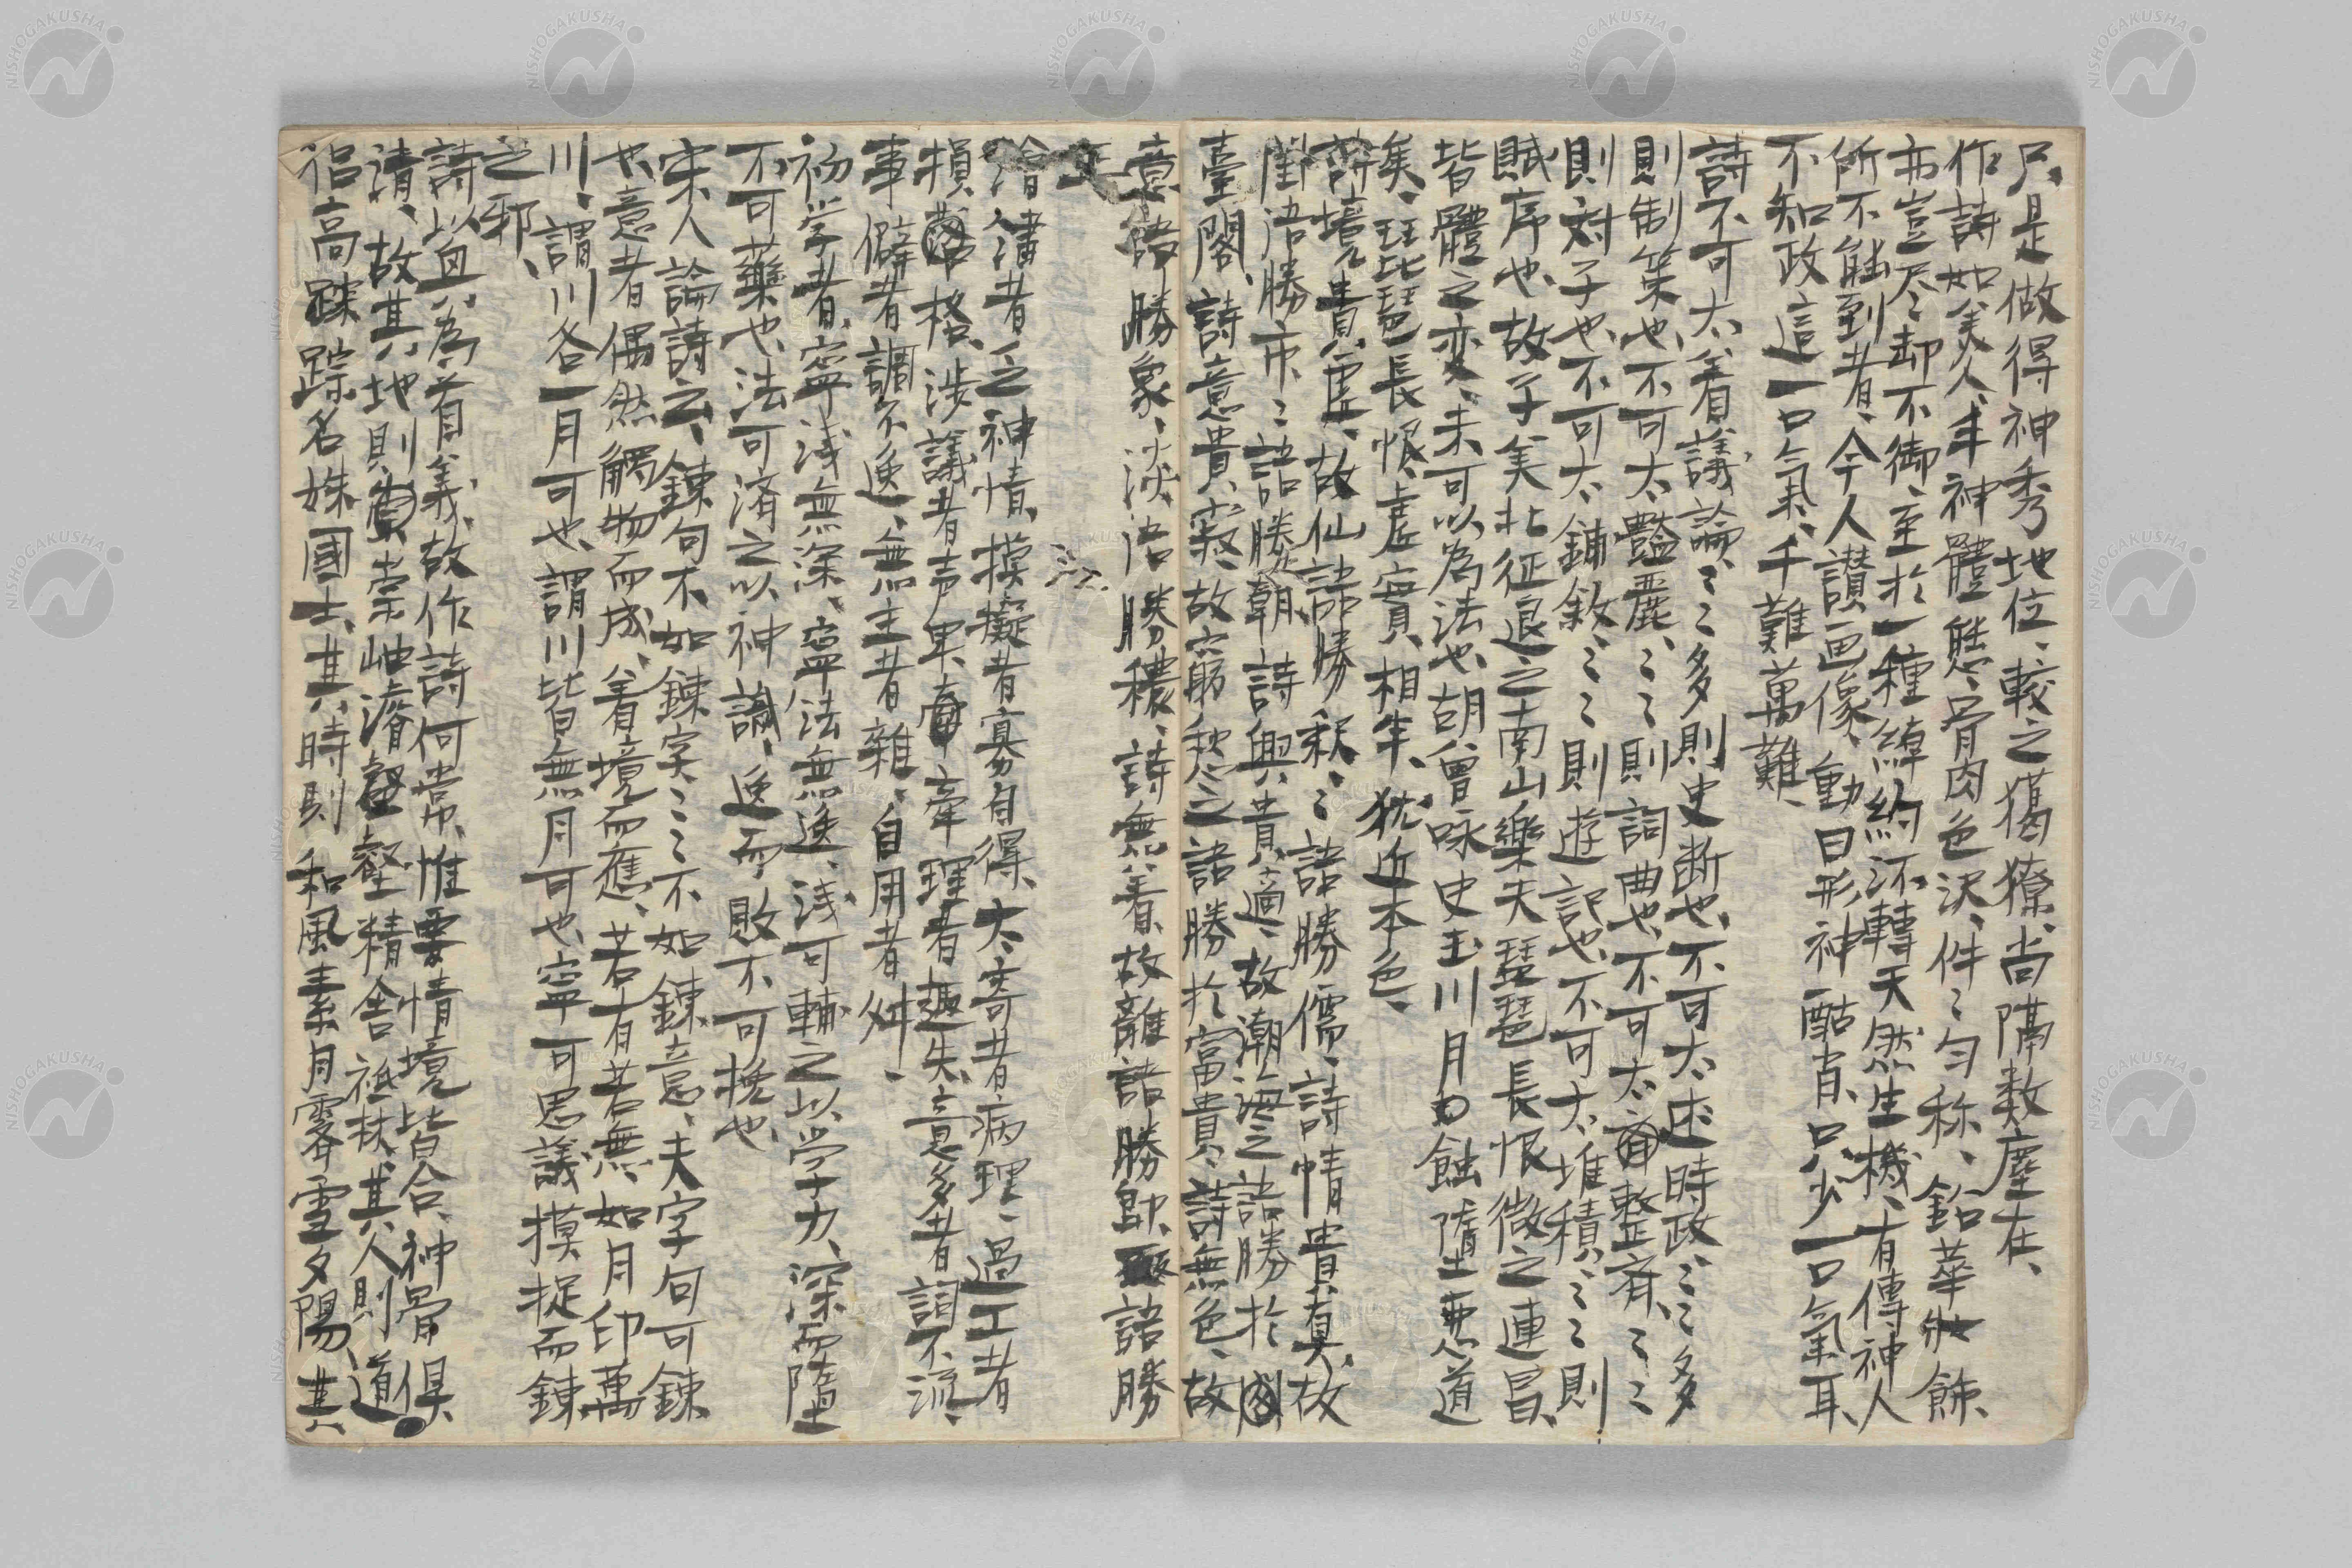 只是做得神秀地位、較之獦獠、尚隔数塵在、
作詩如美人、丰神體態、骨肉色沢、件〻匀称、鉛華妝餙、
亦豈尽〻却不御、至於一種綽約流轉天然生機、有傳神人
所不能到者、今人讃画像、動曰形神酷肖、只少一口氣耳、
不知政這一口氣、千難萬難、
詩不可太着議論、〻〻多則史断也、不可太述時政、〻〻多
則制策也、不可太豔麗、〻〻則詞曲也、不可太整齊、〻〻
則対子也、不可太鋪敘、〻〻則遊記也、不可太堆積、〻〻則
賦序也、故子美北征退之南山樂天琵琶長恨微之連昌、
皆體之変、未可以為法也、胡曾咏史玉川月蝕墮悪道
矣、琵琶長恨、虚實相半、犹近本色、
詩境貴虚、故仙語勝釈、〻語勝儒、詩情貴真、故
閨語勝市、〻語勝朝、詩興貴適、故潮海之語勝於
臺閣、詩意貴寂、故六朝秋之語勝於富貴、詩無色、故
意語勝象、淡語勝穠、詩無着、故離語勝即、語勝
年
江
繪溝者乏神情、摸擬者寡自得、太奇者病理、過工者
損格、涉議者声卑、牽理者趣失、意多者詞不流、
事僻者調不逸、無主者雜、自用者舛、
初学者、寧浅無深、寧法無逸、浅可輔之以学力、深而墮
不可藥也、法可済之以神諭、逸而敗不可挽也、
宋人論詩云、鍊句不如鍊字、〻〻不如鍊意、夫字句可鍊
也、意者偶然觸物而成、着境而應、若有若無、如月印萬
川、謂川各一月可也、謂川皆無月可也、寧可思議摸捉而鍊
之邪、
詩以宜為有義、故作詩何常、惟要情境皆合、神骨俱
清、故其地則崇岫濬壑精舍祗林、其人則道
侶高踪名姝國士、其時則和風素月霽雪夕陽、其